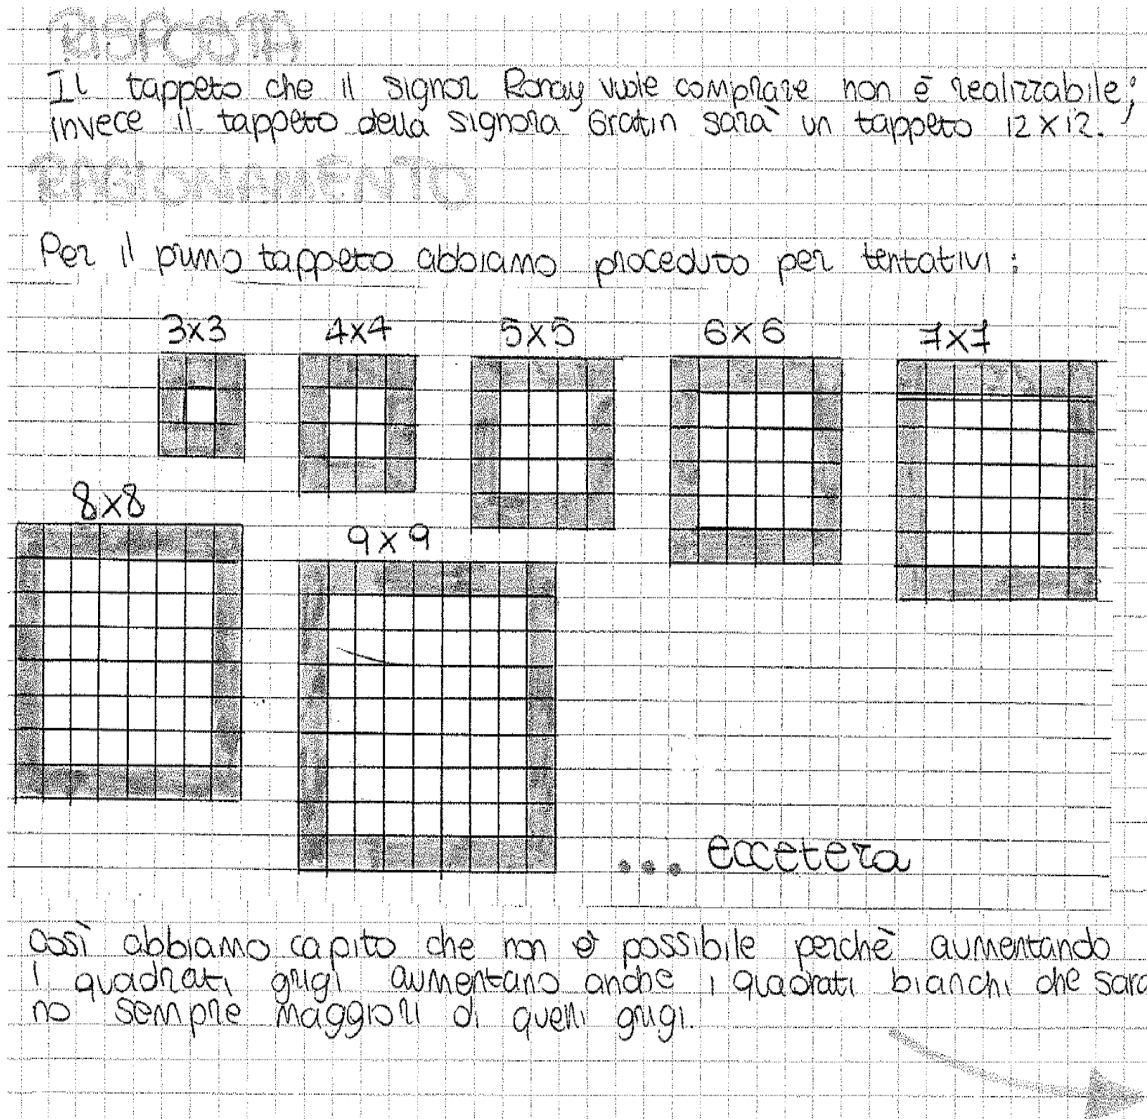 RISPOSTA
Il tappeto che il signor Ronay vuole comprare non è realizzabile;
invece il tappeto della signora Gratin sarà un tappeto 12x12.
RAGIONAMENTO
Per il primo tappeto abbiamo proceduto per tentativi:
3x3 4x4 5x5 6x6 7x7
8x8 9x9
... eccetera
così abbiamo capito che non è possibile perchè aumentando
i quadrati grigi aumentano anche i quadrati bianchi che sara
no sempre maggiori di quelli grigi.